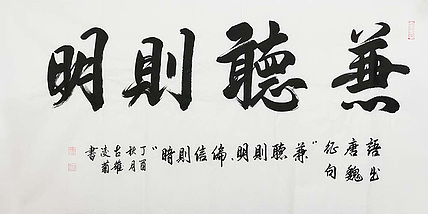 兼聽則明
語出
唐魏
征句
"兼聽則明、偏信則暗"
丁酉
秋月
古雄
凌菊
書